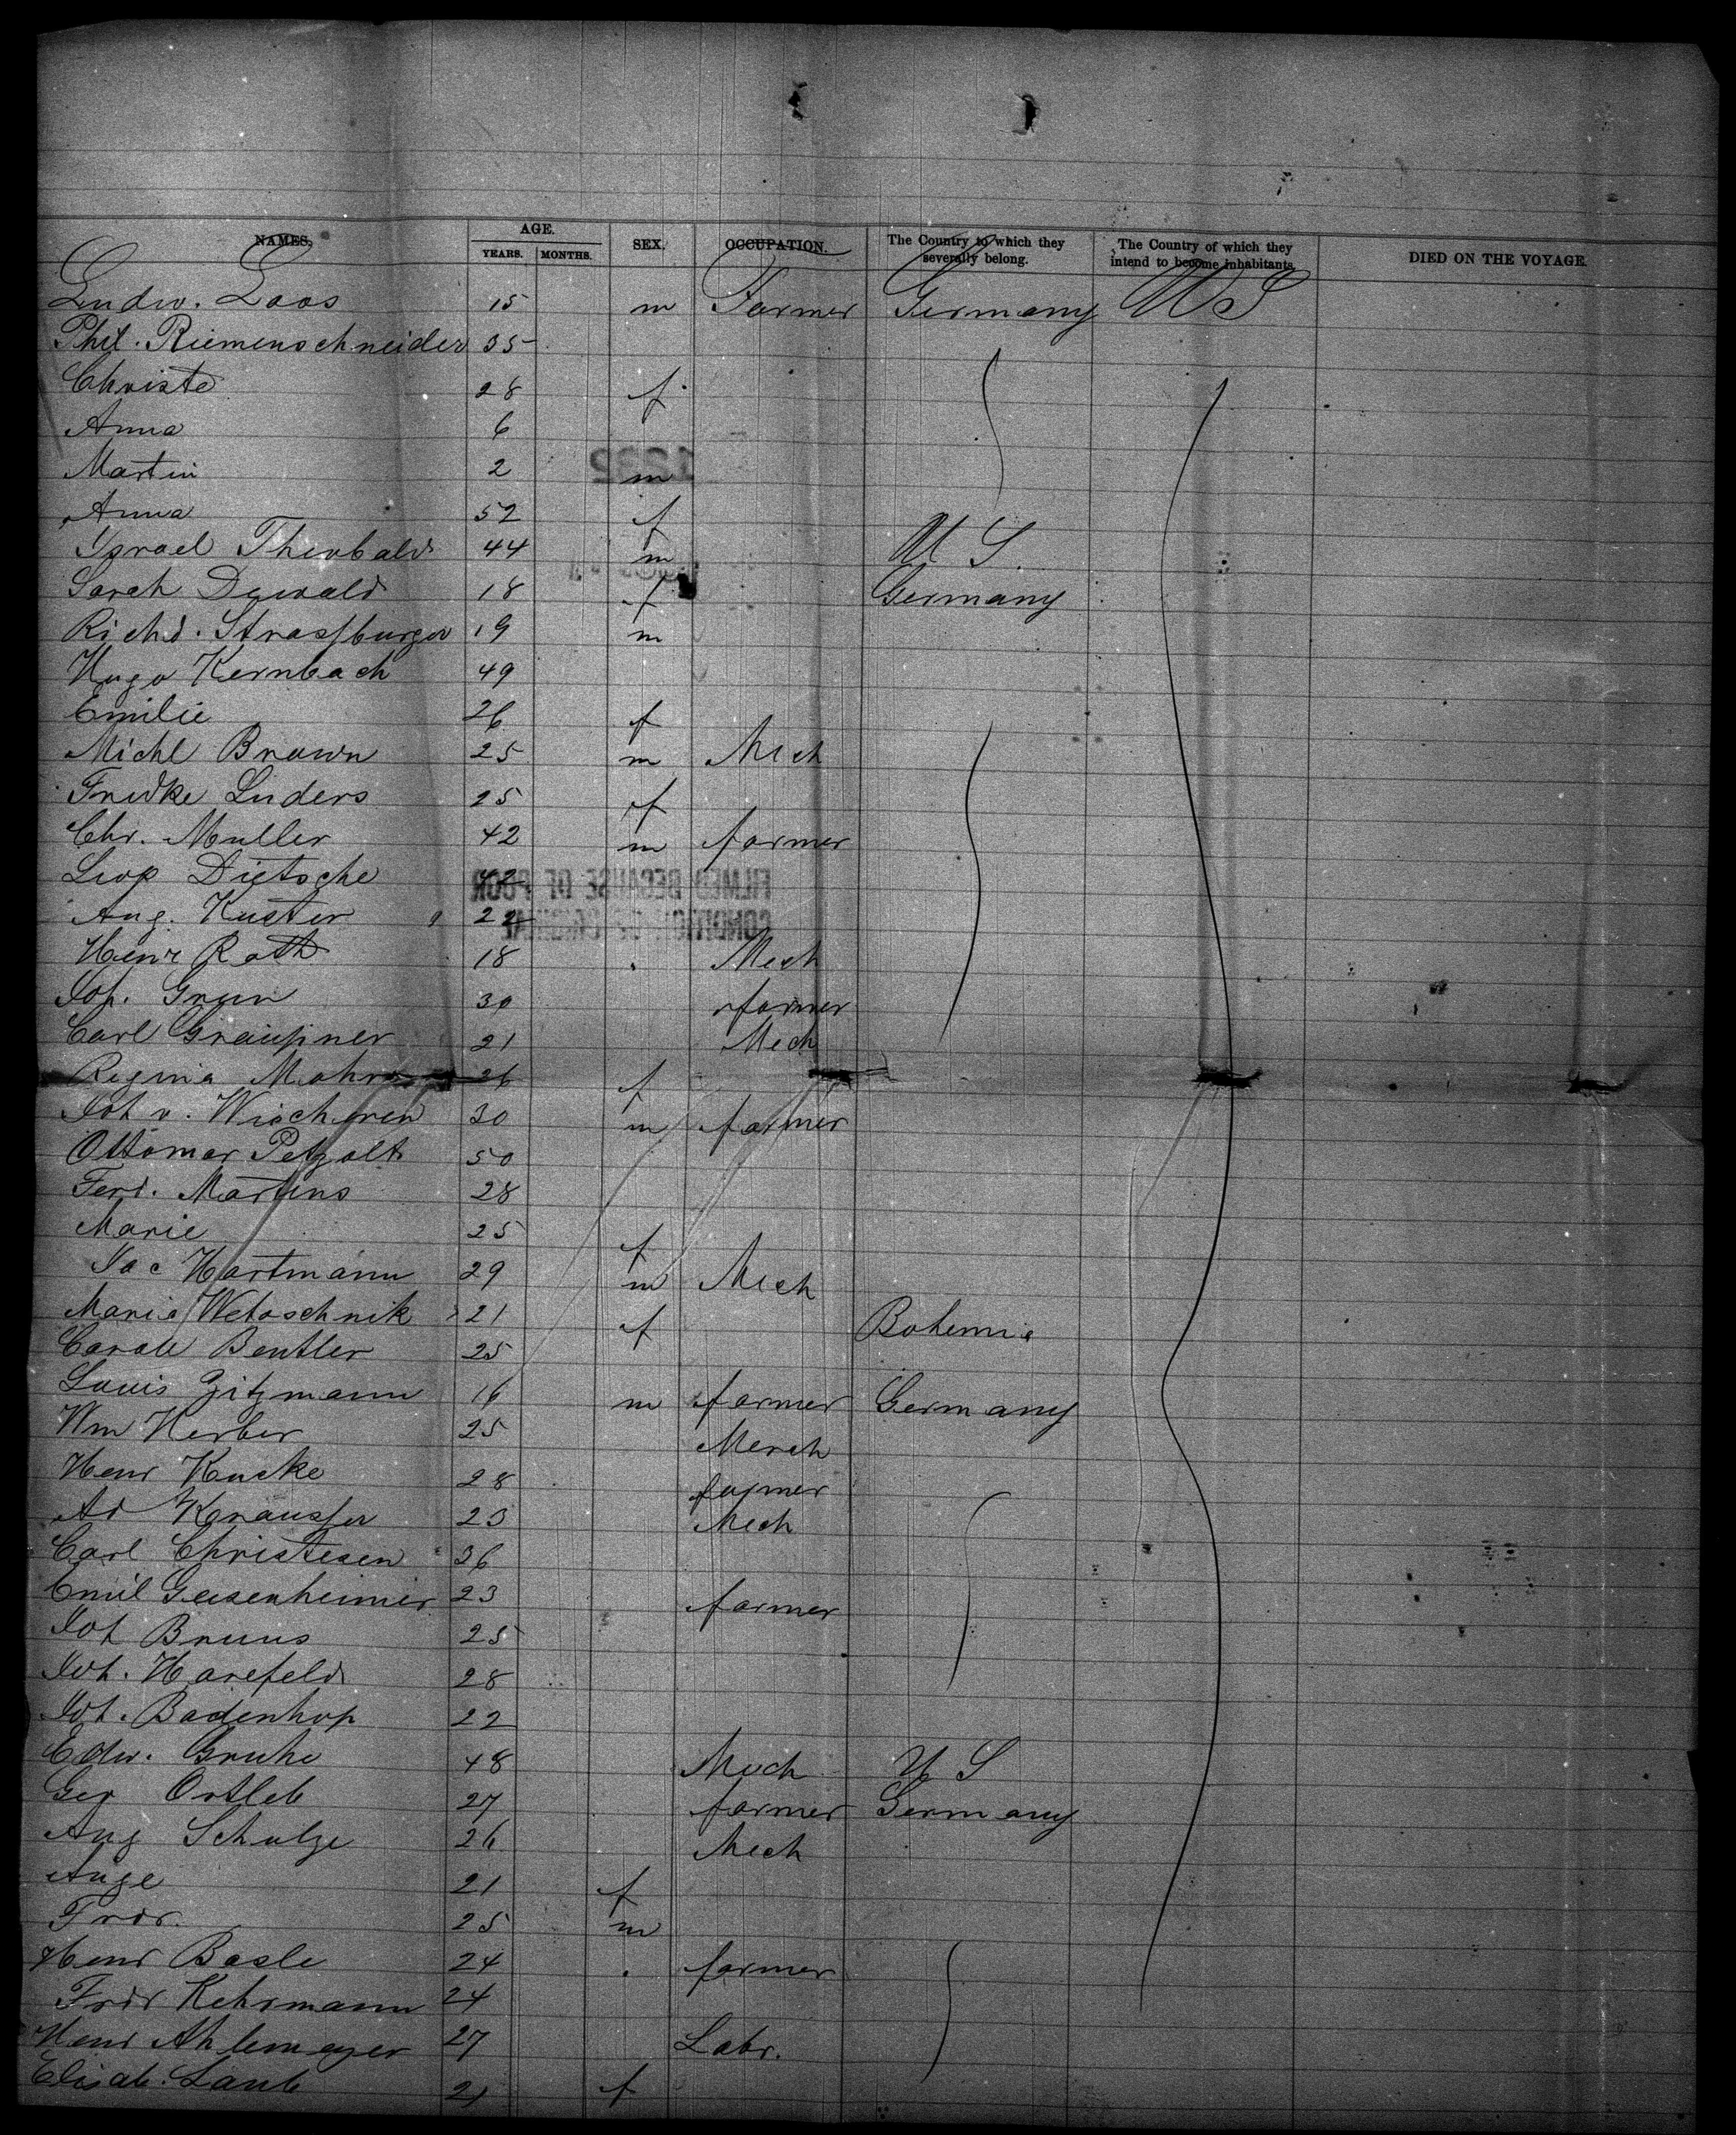 NAMES. AGE. YEARS. MONTHS. SEX. OCCUPATION. The Country to which they severally belong. The Country of which they intend to become inhabitants. DIED ON THE VOYAGE.
Ludw. Loos 15 m Farmer Germany US
Phil. Riemenschneider 35
Christe 28 f
Anna 6
Martin 2 m
Anna 52 f
Israel Theobald 44 m U S.
Sarah Dewald 18 f Germany
Richd. Strassburger 19 m
Hugo Kernbach 49
Emilie 26 f
Michl Brown 25 m Mech
Fredke Luders 25 f
Chr. Muller 42 m farmer
Leop Dietsche 42
FILMED BECAUSE OF POOR
CONDITION OF ORIGINAL
Aug. Kuster 22
Henr Roth 18 Mech
Joh. Grun 30 farmer
Carl Graupner 21 Mech
Regina Mohr 26 f
Joh v. Wischeren 30 m farmer
Ottomar Petzolt 50
Ferd. Martins 28
Marie 25 f
Jac Hartmann 29 m Mech
Maria Wetoschnik 21 f Bohemia
Carole Beutler 25
Louis Zitzmann 16 m farmer Germany
Wm Herber 25 Merch
Henr Kucke 28 farmer
Ad Krausser 23 Mech
Carl Christesen 36
Emil Geisenheimer 23 farmer
Joh Bruns 25
Joh. Harefeld 28
Joh. Badenhop 22
Edw. Gruhe 48 Mech U S
Ger Ortleb 27 farmer Germany
Aug Schulze 26 Mech
Auge 21 f
Frdr. 25 m
Henr Basle 24 farmer
Frdr Kehrmann 24
Henr Ahlemeyer 27 Labr.
Elisab. Laub 21 f